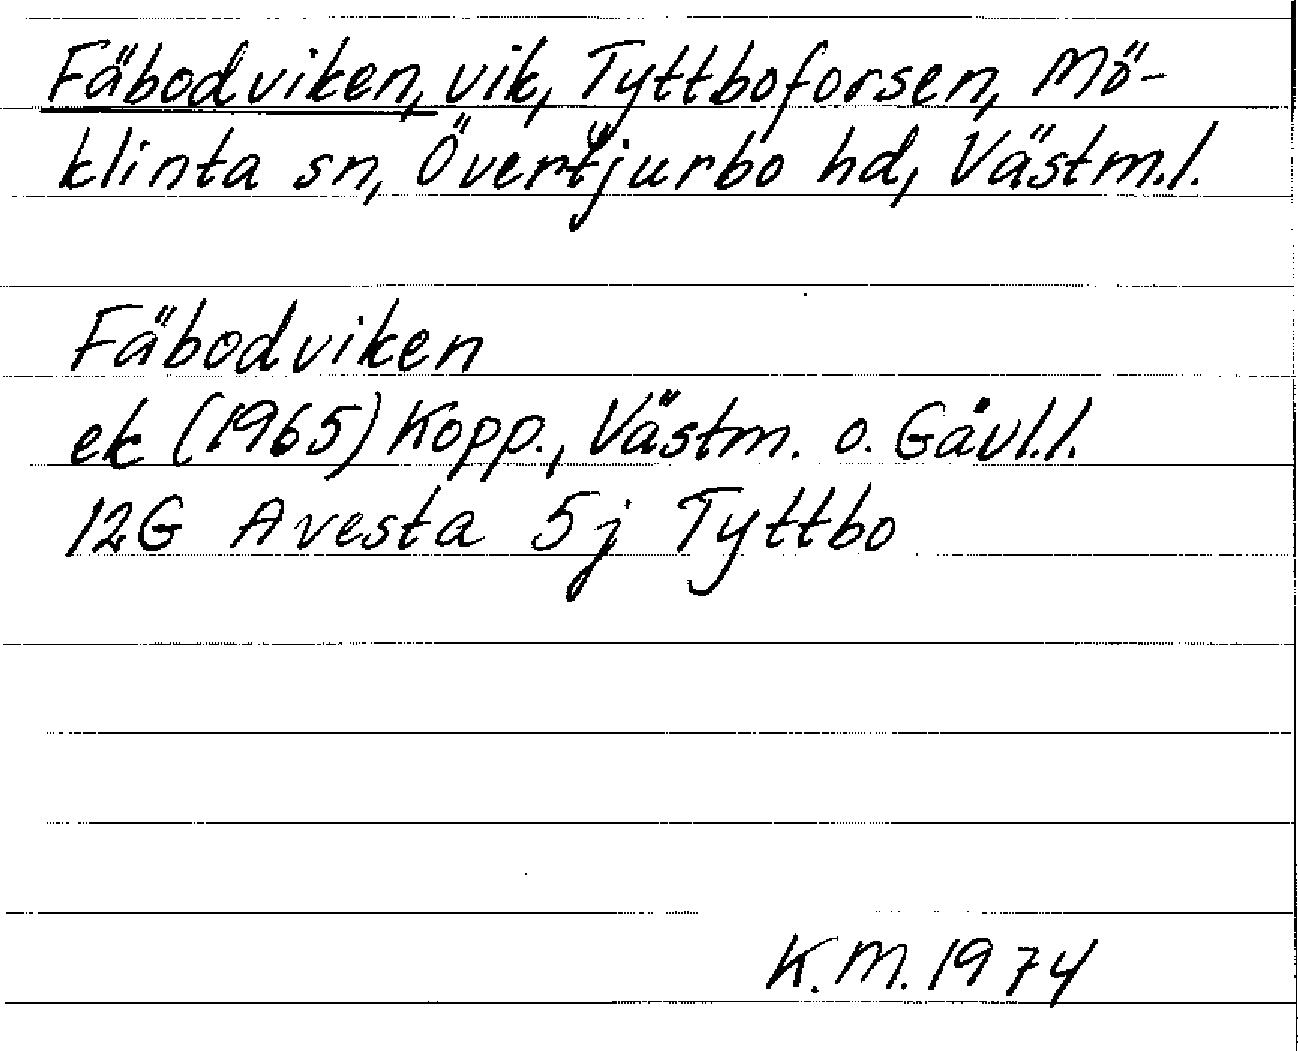 Fäbodviken, vik, Tyttboforsen, Mö-
klinta sn, Övertjurbo hd, Västm.l.
Fäbodviken
ek (1965) Kopp., Västm. o. Gävl.l.
12G Avesta 5j Tyttbo
K.M. 1974